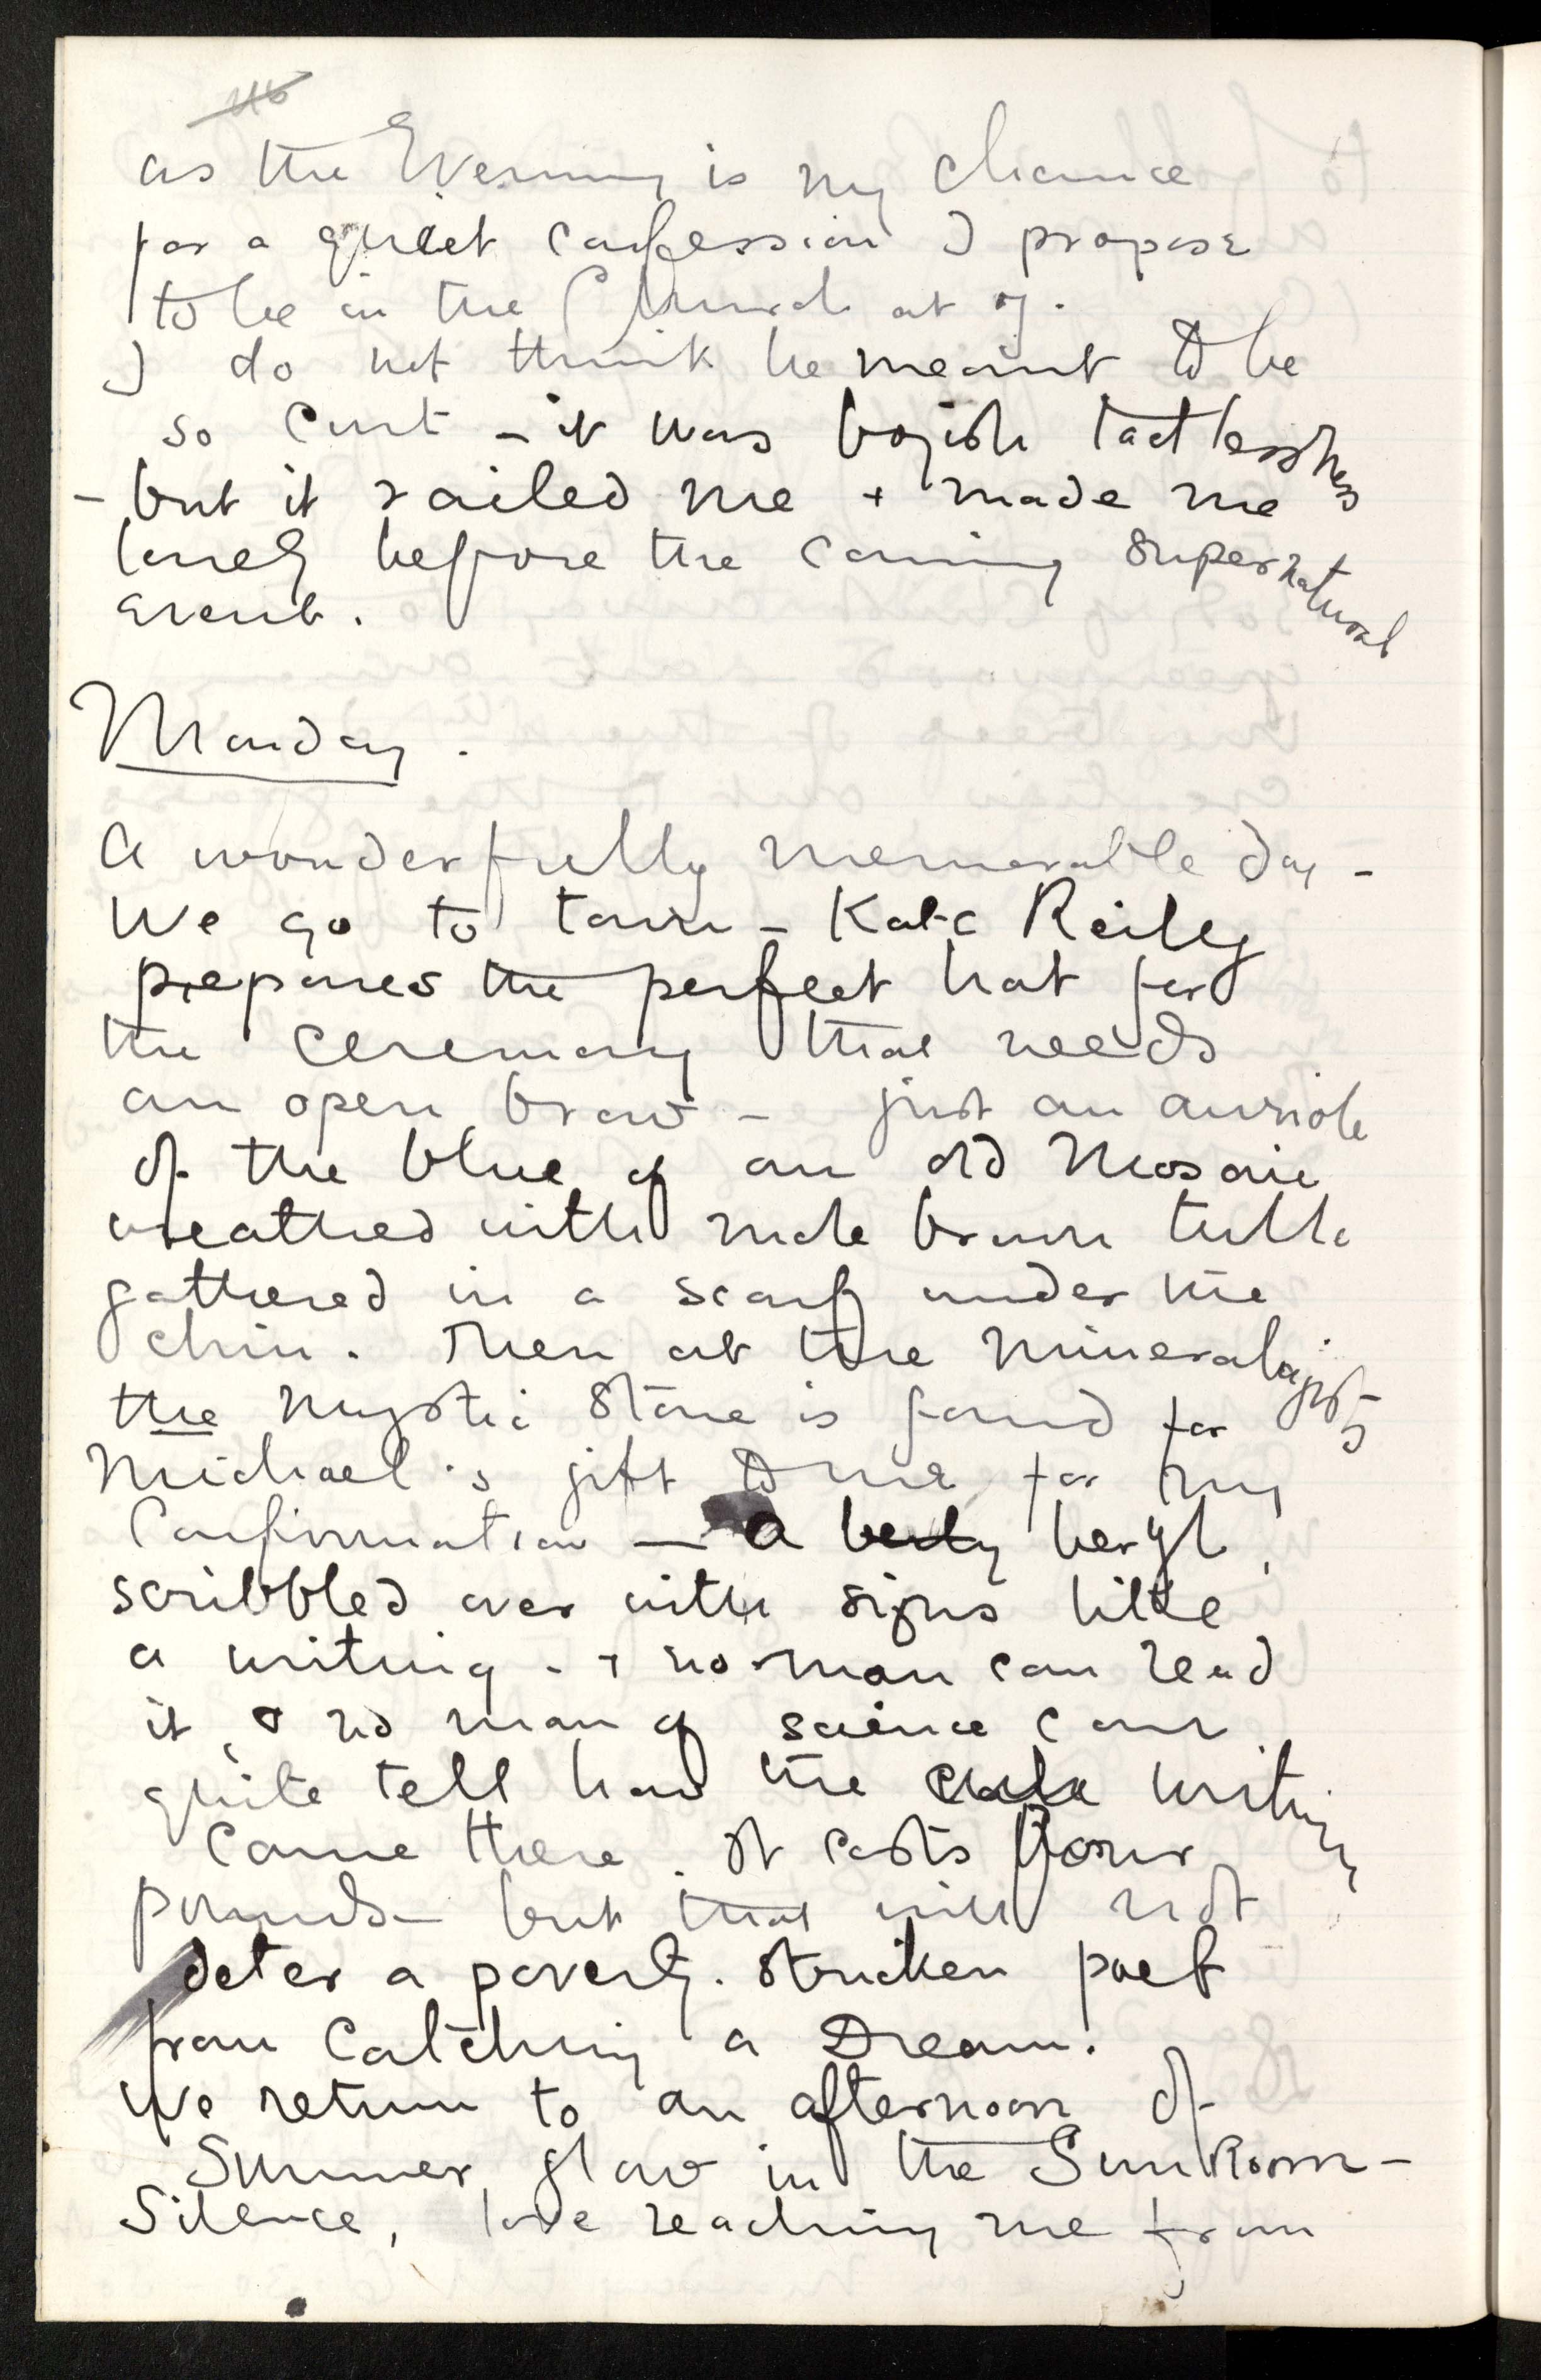 as the Evening is my chance
for a quiet confession I propose
to be in the Church at 7.
I do not think he meant to be
so curt – it was boyish tactlessness
– but it railed me + made me
lonely before the coming supernatural
event.
Monday.
A wonderfully memorable day –
We go to town – Kate Reilly
prepares the perfect hat for
the ceremony that needs
an open brow – just an auriole
of the blue of an old Mosaic
wreathed with nude brown tulle
gathered in a scarf under the
chin. Then at the mineralogist's
the mystic stone is found for
Michael's gift to me for my
Confirmation – a berly beryl,
scribbled over with signs like
a writing – + no man can read
it, & no man of science can
quite tell how the writing
came there. It costs four
pounds – but that will not
deter a poverty-stricken poet
from catching a Dream.
We return to an afternoon of
Summer glow in the Sun Room –
Silence, love reaching me from